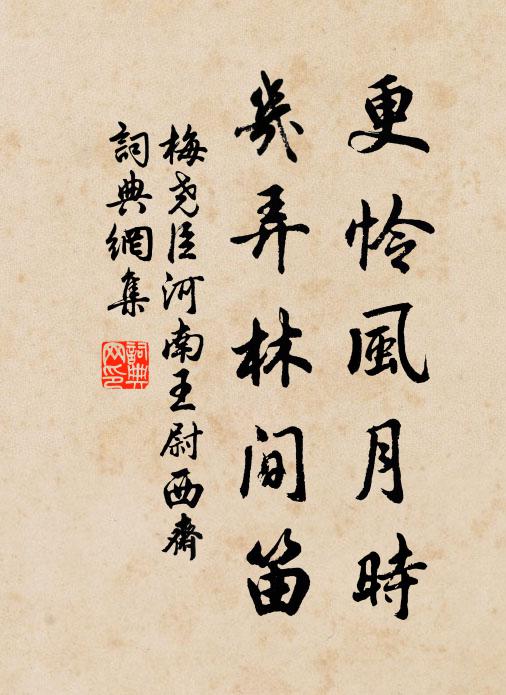 更怜風月時
幾弄林间笛
梅尧臣河南王尉西齋
詞典網集
詞典網印